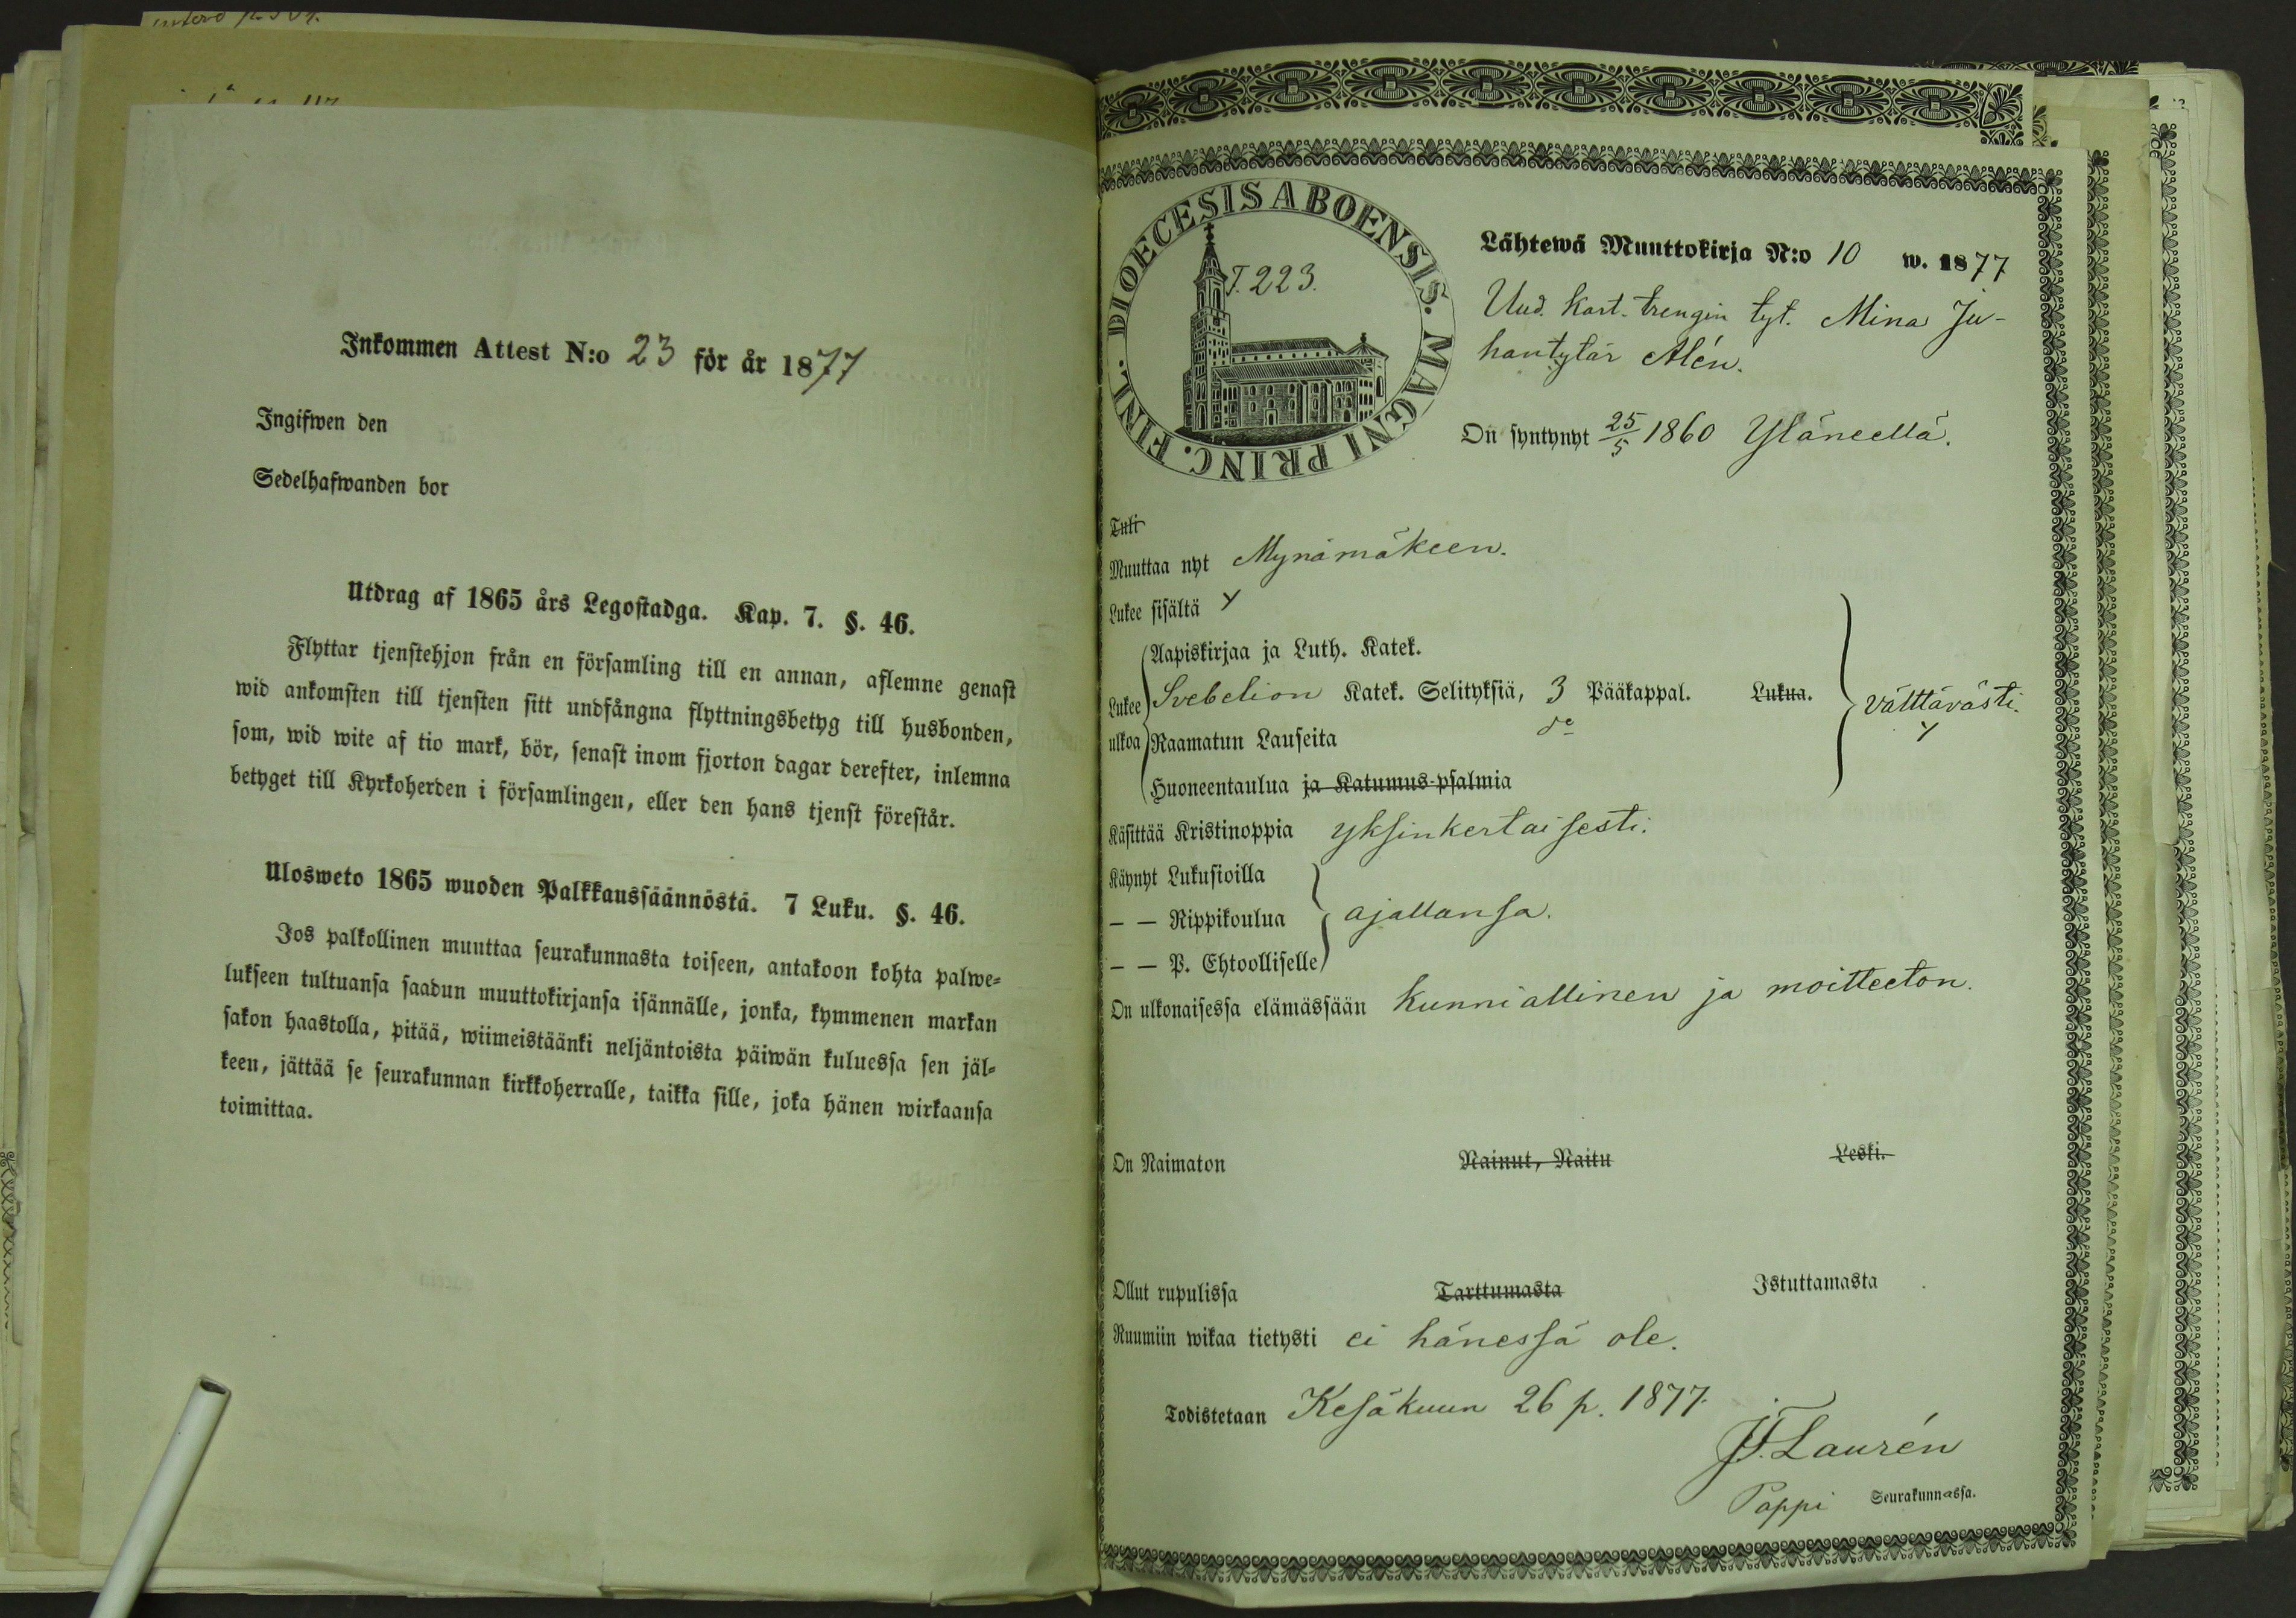 Inkommen Attest N:o 23 för år 1877
Ingifwen den
Sedelhafwanden bor
Utdrag af 1865 års Legostadga. Kap. 7. §. 46.
Flyttar tjenstehjon från en församling till en annan, aflemne genast
wid ankomsten till tjensten sitt undfångna flyttningsbetyg till husbonden,
som, wid wite af tio mark, bör, senast inom fjorton dagar derefter, inlemna
betyget till Kyrkoherden i församlingen, eller den hans tjenst förestår.
Ulosweto 1865 wuoden Palkkaussäännöstä. 7 Luku. §. 46.
Jos palkollinen muuttaa seurakunnasta toiseen, antakoon kohta palwe=
lukseen tultuansa saadun muuttokirjansa isännälle, jonka, kymmenen markan
sakon haastolla, pitää, wiimeistäänki neljäntoista päiwän kuluessa sen jäl=
keen, jättää se seurakunnan kirkkoherralle, taikka sille, joka hänen wirkaansa
toimittaa.
DIOECESIS ABOENSIS. MAGNI PRINC. FINL.
T. 223.
Lähtewä Muuttokirja N:o 10 w. 1877
Uud. kart. trengin tyt. Mina Ju-
hantytär Alén.
On syntynyt 25/5 1860 Yläneellä.
Tuli
Muuttaa nyt Mynämäkeen.
Lukee sisältä Y
Aapiskirjaa ja Luth. Katek.
Lukee ulkoa Svebelion Katek. Selityksiä, 3 Pääkappal. Lukua. välttävästi. Y
Raamatun Lauseita do
Huoneentaulua ja Katumus-psalmia
Käsittää Kristinoppia yksinkertaisesti.
Käynyt Lukusioilla
— — Rippikoulua ajallansa.
— — P. Ehtoolliselle
On ulkonaisessa elämässään kunniallinen ja moitteeton.
On Naimaton Nainut, Naitu Leski.
Ollut rupulissa Tarttumasta Istuttamasta
Ruumiin wikaa tietysti ei hänessä ole.
Todistetaan Kesäkuun 26 p. 1877.
J. F. Laurén
Pappi Seurakunnassa.